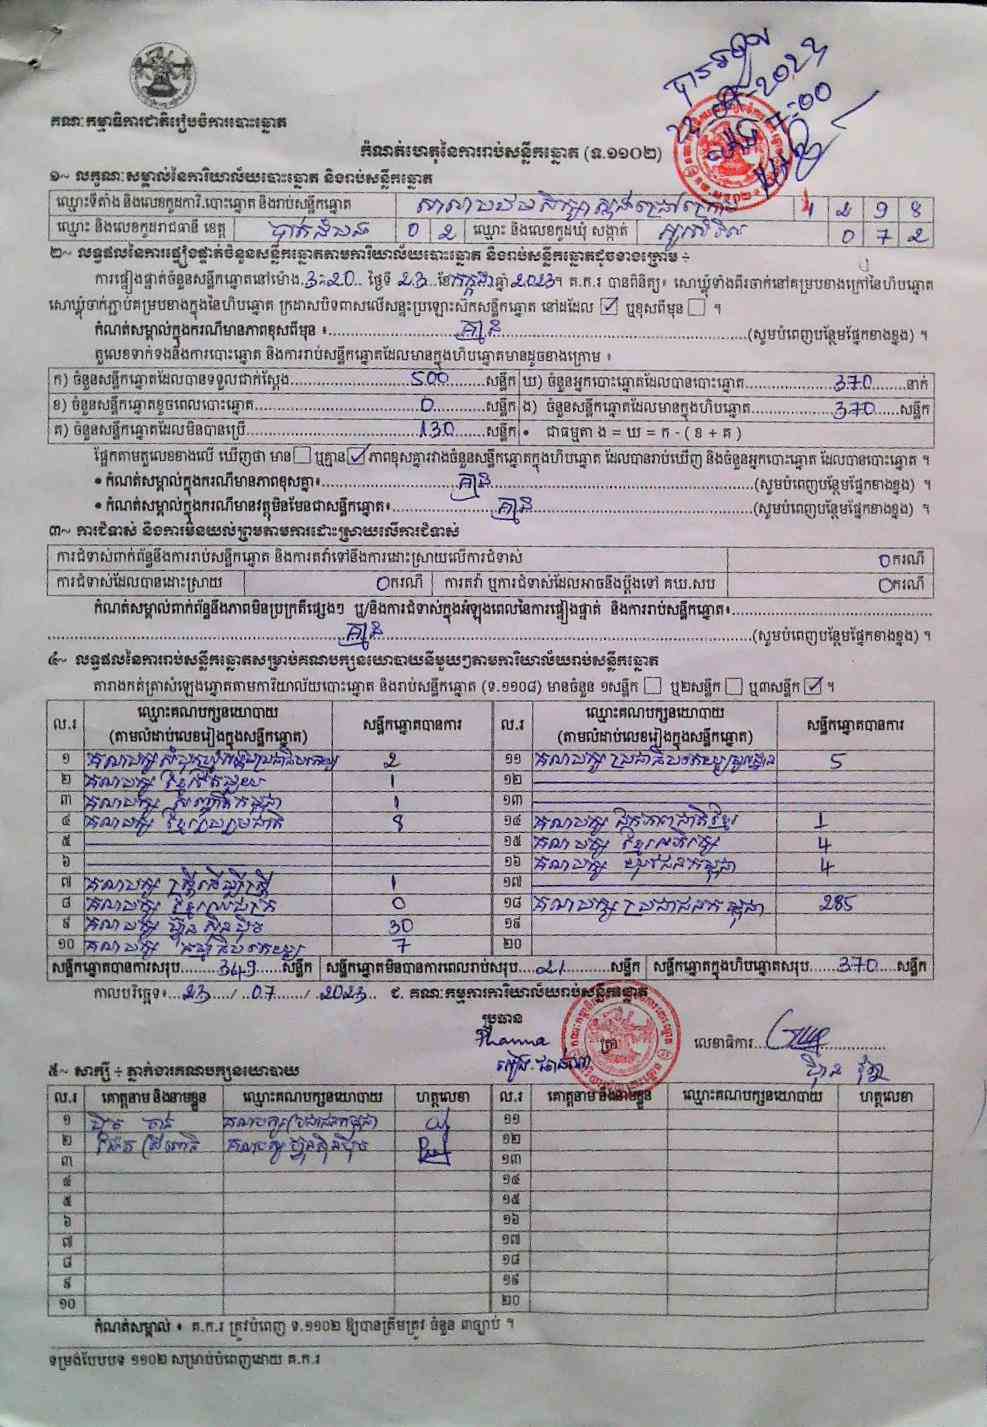 គណៈកម្មាធិការជាតិរៀបចំការបោះឆ្នោត
កំណត់ហេតុនៃការរាប់សន្លឹកឆ្នោត (ទ.១១០២)
១~ លក្ខណៈសម្គាល់នៃការិយាល័យបោះឆ្នោត និងរាប់សន្លឹកឆ្នោត
ឈ្មោះទីតាំង និងលេខកូដការិ.បោះឆ្នោត និងរាប់សន្លឹកឆ្នោត
ឈ្មោះ និងលេខកូដរាជធានី ខេត្ត បាត់ដំបង 0 2 ឈ្មោះ និងលេខកូដឃុំ សង្កាត់ 0 7 2
២~ លទ្ធផលនៃការផ្ទៀងផ្ទាត់ចំនួនសន្លឹកឆ្នោតតាមការិយាល័យបោះឆ្នោត និងរាប់សន្លឹកឆ្នោតដូចខាងក្រោម ÷
ការផ្ទៀងផ្ទាត់ចំនួនសន្លឹកឆ្នោតនៅម៉ោង 3:20 ថ្ងៃទី 23 ខែ កក្កដា ឆ្នាំ 2023។ គ.ក.រ បានពិនិត្យ៖ សោឃ្លុំទាំងពីរចាក់នៅគម្របខាងក្រៅនៃហិបឆ្នោត
សោឃ្លុំចាក់ភ្ជាប់គម្របខាងក្នុងនៃហិបឆ្នោត ក្រដាសបិទពាសលើសន្ទះប្រឡោះសិកសន្លឹកឆ្នោត នៅដដែល ☑ ឬខុសពីមុន ☐ ។
កំណត់សម្គាល់ក្នុងករណីមានភាពខុសពីមុន ៖ គ្មាន (សូមបំពេញបន្ថែមផ្នែកខាងខ្នង) ។
តួលេខទាក់ទងនឹងការបោះឆ្នោត និងការរាប់សន្លឹកឆ្នោតដែលមានក្នុងហិបឆ្នោតមានដូចខាងក្រោម ៖
ក) ចំនួនសន្លឹកឆ្នោតដែលបានទទួលជាក់ស្ដែង 500 សន្លឹក ឃ) ចំនួនអ្នកបោះឆ្នោតដែលបានបោះឆ្នោត 370 នាក់
ខ) ចំនួនសន្លឹកឆ្នោតខូចពេលបោះឆ្នោត 0 សន្លឹក ង) ចំនួនសន្លឹកឆ្នោតដែលមានក្នុងហិបឆ្នោត 370 សន្លឹក
គ) ចំនួនសន្លឹកឆ្នោតដែលមិនបានប្រើ 130 សន្លឹក • ជាធម្មតា ង = ឃ = ក - ( ខ + គ )
ផ្អែកតាមតួលេខខាងលើ ឃើញថា មាន ☐ ឬគ្មាន ☑ ភាពខុសគ្នារវាងចំនួនសន្លឹកឆ្នោតក្នុងហិបឆ្នោត ដែលបានរាប់ឃើញ និងចំនួនអ្នកបោះឆ្នោត ដែលបានបោះឆ្នោត ។
• កំណត់សម្គាល់ក្នុងករណីមានភាពខុសគ្នា៖ គ្មាន (សូមបំពេញបន្ថែមផ្នែកខាងខ្នង) ។
• កំណត់សម្គាល់ក្នុងករណីមានវត្ថុមិនមែនជាសន្លឹកឆ្នោត៖ គ្មាន (សូមបំពេញបន្ថែមផ្នែកខាងខ្នង) ។
៣~ ការជំទាស់ និងការមិនយល់ព្រមតាមការដោះស្រាយលើការជំទាស់
ការជំទាស់ពាក់ព័ន្ធនឹងការរាប់សន្លឹកឆ្នោត និងការតវ៉ាទៅនឹងការដោះស្រាយលើការជំទាស់ 0 ករណី
ការជំទាស់ដែលបានដោះស្រាយ 0 ករណី ការតវ៉ា ឬការជំទាស់ដែលអាចនឹងប្ដឹងទៅ គឃ.សប 0 ករណី
កំណត់សម្គាល់ពាក់ព័ន្ធនឹងភាពមិនប្រក្រតីផ្សេងៗ ឬ/និងការជំទាស់ក្នុងអំឡុងពេលនៃការផ្ទៀងផ្ទាត់ និងការរាប់សន្លឹកឆ្នោត៖
គ្មាន (សូមបំពេញបន្ថែមផ្នែកខាងខ្នង) ។
៤~ លទ្ធផលនៃការរាប់សន្លឹកឆ្នោតសម្រាប់គណបក្សនយោបាយនីមួយៗតាមការិយាល័យរាប់សន្លឹកឆ្នោត
តារាងកត់ត្រាសំឡេងឆ្នោតតាមការិយាល័យបោះឆ្នោត និងរាប់សន្លឹកឆ្នោត (ទ.១១០៨) មានចំនួន ១សន្លឹក ☐ ឬ២សន្លឹក ☐ ឬ៣សន្លឹក ☑ ។
ល.រ ឈ្មោះគណបក្សនយោបាយ (តាមលំដាប់លេខរៀងក្នុងសន្លឹកឆ្នោត) សន្លឹកឆ្នោតបានការ ល.រ ឈ្មោះគណបក្សនយោបាយ (តាមលំដាប់លេខរៀងក្នុងសន្លឹកឆ្នោត) សន្លឹកឆ្នោតបានការ
១ គណបក្ស 2 ១១ គណបក្ស 5
២ គណបក្ស 1 ១២
៣ គណបក្ស 1 ១៣
៤ គណបក្ស ខ្មែររួបរួមជាតិ 8 ១៤ គណបក្ស 1
៥ ១៥ គណបក្ស 4
៦ ១៦ គណបក្ស 4
៧ គណបក្ស ស្ត្រីដើម្បីស្ត្រី 1 ១៧
៨ គណបក្ស 0 ១៨ គណបក្ស ប្រជាជនកម្ពុជា 285
៩ គណបក្ស ហ្វ៊ុនស៊ិនប៉ិច 30 ១៩
១០ គណបក្ស 7 ២០
សន្លឹកឆ្នោតបានការសរុប 349 សន្លឹក សន្លឹកឆ្នោតមិនបានការពេលរាប់សរុប 21 សន្លឹក សន្លឹកឆ្នោតក្នុងហិបឆ្នោតសរុប 370 សន្លឹក
កាលបរិច្ឆេទ៖ 23 / 07 / 2023 ជ. គណៈកម្មការការិយាល័យរាប់សន្លឹកឆ្នោត
ប្រធាន
លេខាធិការ
៥~ សាក្សី ÷ ភ្នាក់ងារគណបក្សនយោបាយ
ល.រ គោត្តនាម និងនាមខ្លួន ឈ្មោះគណបក្សនយោបាយ ហត្ថលេខា ល.រ គោត្តនាម និងនាមខ្លួន ឈ្មោះគណបក្សនយោបាយ ហត្ថលេខា
១ គណបក្សប្រជាជនកម្ពុជា ១១
២ គណបក្ស ហ្វ៊ុនស៊ិនប៉ិច ១២
៣ ១៣
៤ ១៤
៥ ១៥
៦ ១៦
៧ ១៧
៨ ១៨
៩ ១៩
១០ ២០
កំណត់សម្គាល់ • គ.ក.រ ត្រូវបំពេញ ទ.១១០២ ឱ្យបានត្រឹមត្រូវ ចំនួន ៣ច្បាប់ ។
ទម្រង់បែបបទ ១១០២ សម្រាប់បំពេញដោយ គ.ក.រ